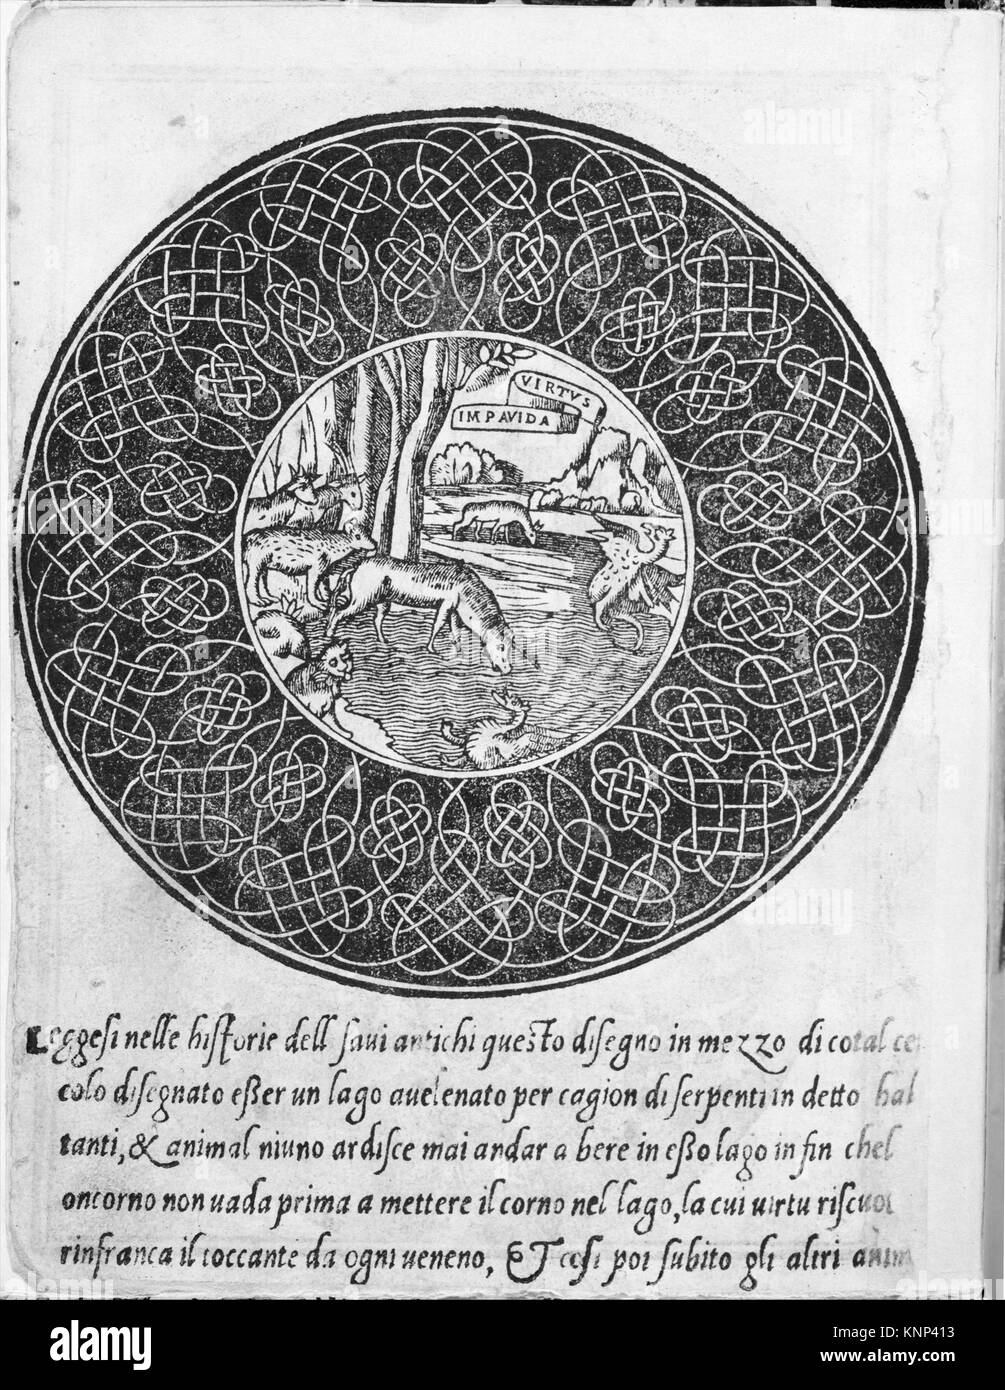 VIRTVS
IMPAVIDA
Leggesi nelle historie dell savi antichi questo disegno in mezzo di cotal cer
colo disegnato esser un lago avelenato per cagion di serpenti in detto habi
tanti, & animal niuno ardisce mai andar a bere in esso lago in fin chel
oncorno non vada prima a mettere il corno nel lago, la cui virtu riscuot
rinfranca il toccante da ogni veneno, & cosi poi subito gli altri anim
alamy
Image ID: KNP413
www.alamy.com